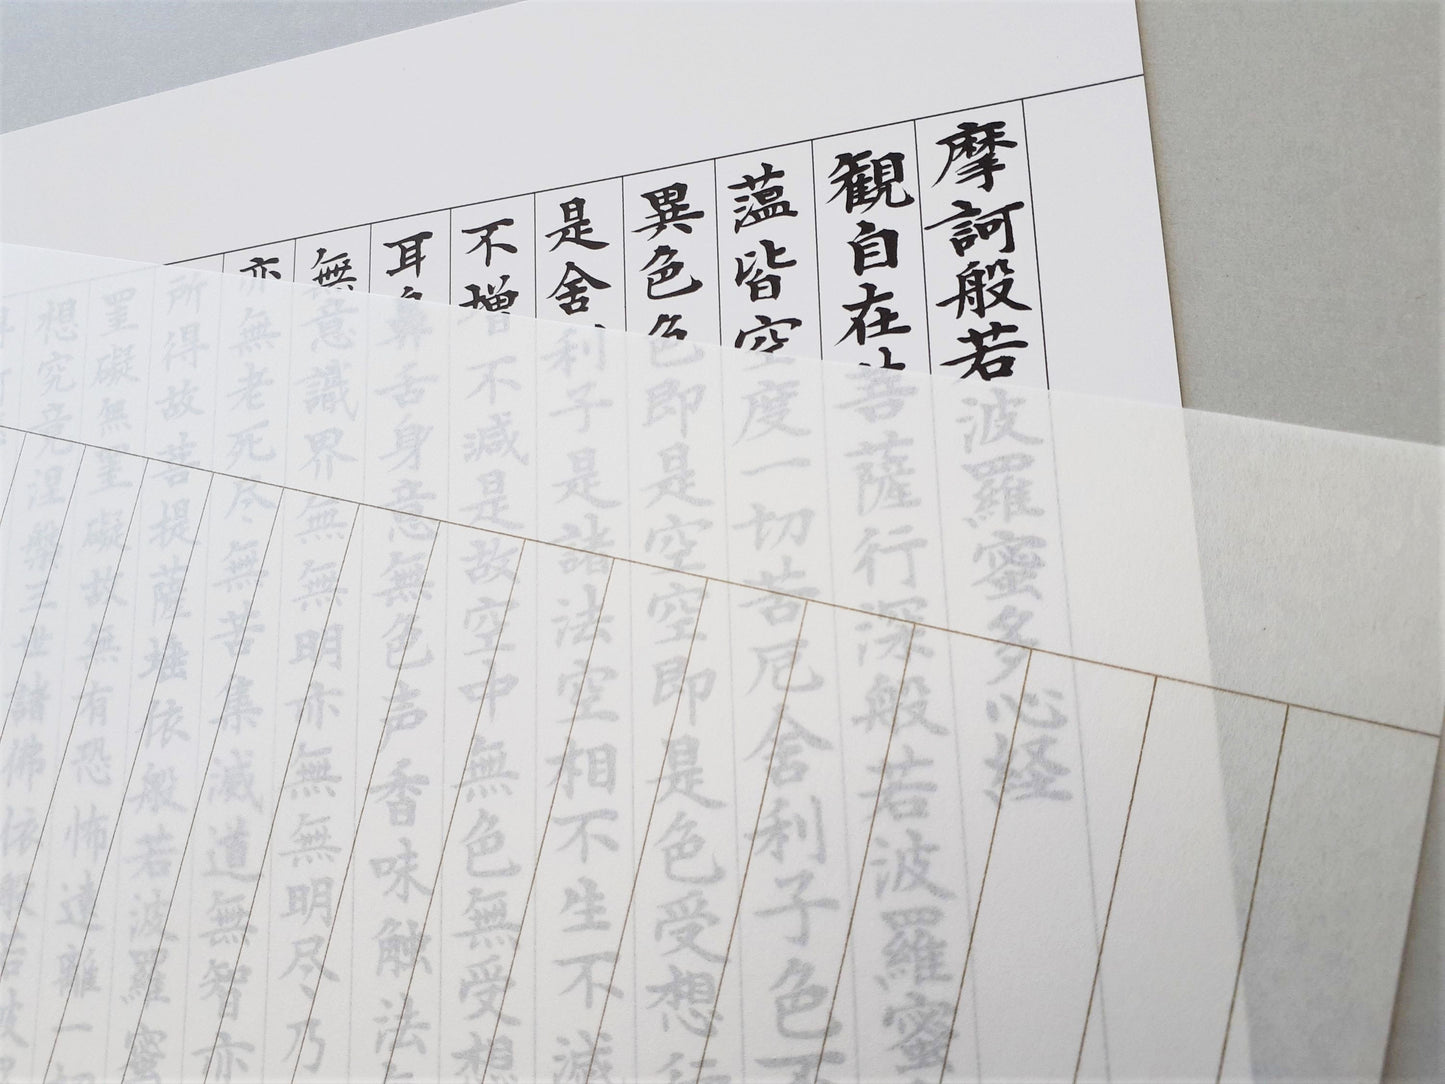 摩訶般若波羅蜜多心経
観自在菩薩行深般若波羅蜜
蘊皆空度一切苦厄舍利子色不
異色色即是空空即是色受想行
是舍利子是諸法空相不生不滅
不増不減是故空中無色無受想
耳鼻舌身意無色声香味触法
無意識界無無明亦無無明尽乃
亦無老死尽無苦集滅道無智亦
所得故菩提薩埵依般若波羅蜜
罣礙無罣礙故無有恐怖遠離一切
想究竟涅槃三世諸佛依般若波